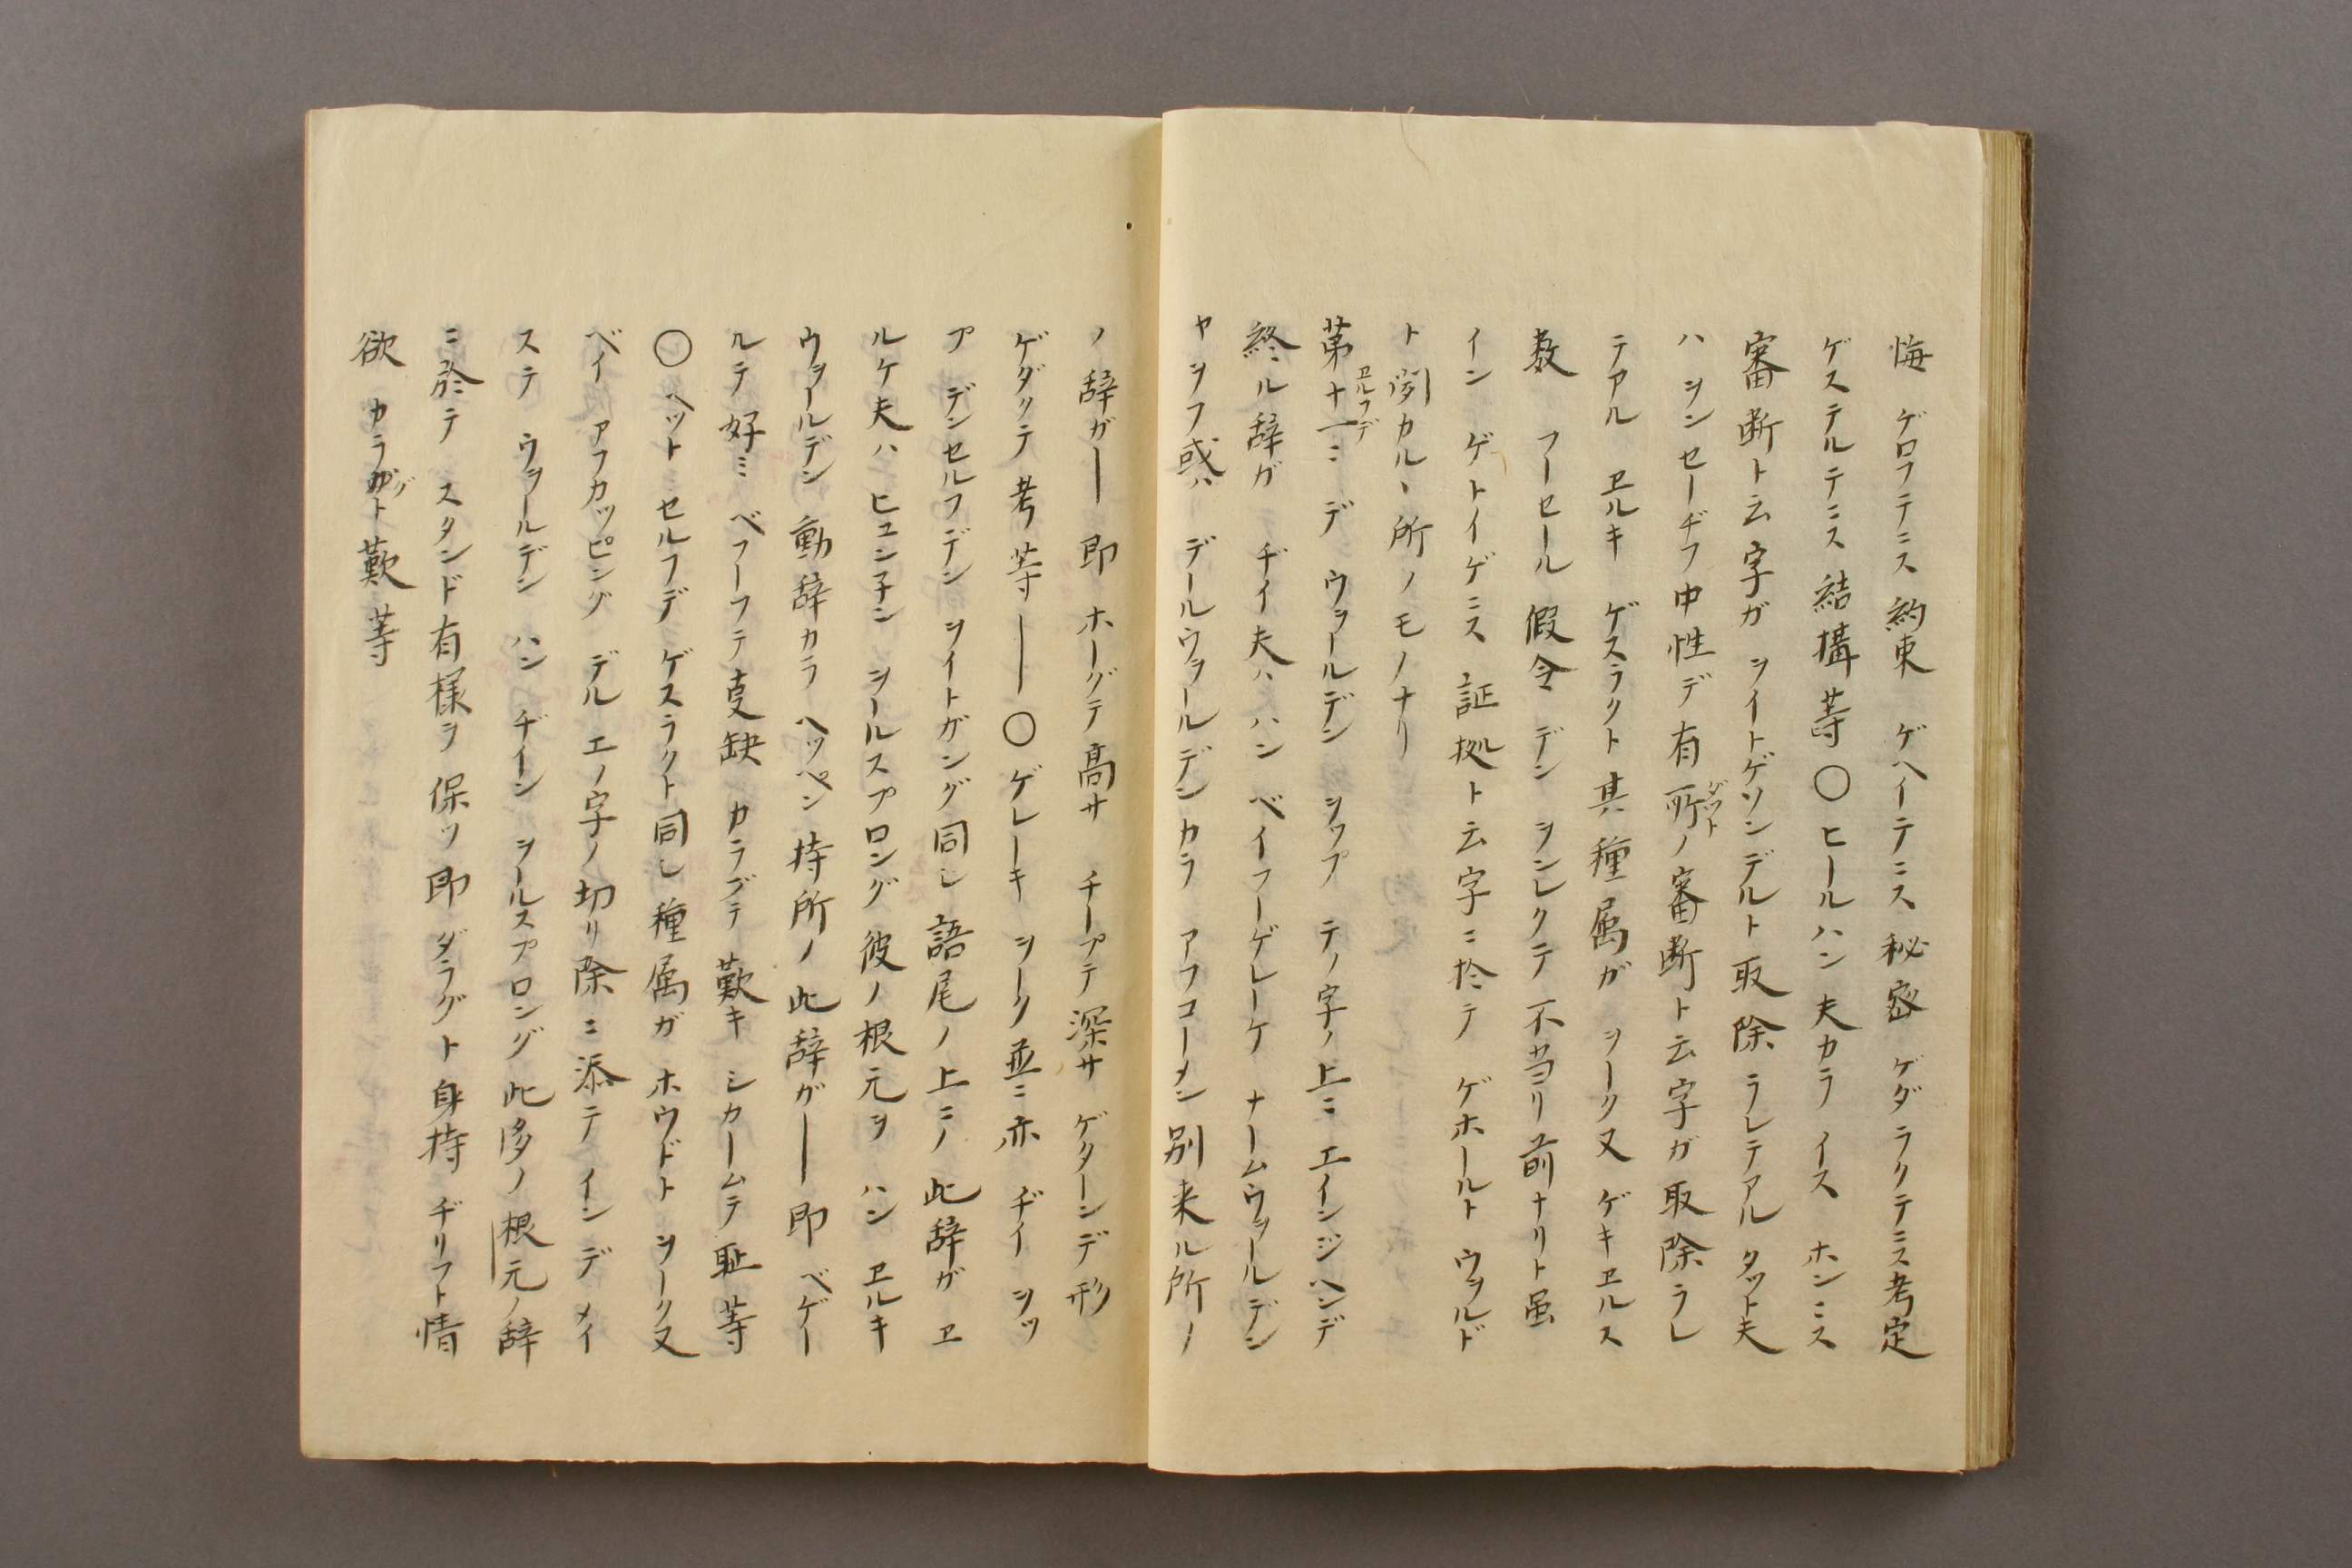 悔 ゲロフテニス 約束 ゲヘイテニス 秘密 ゲダラクテニス 考定
ゲステルテニス 結搆 等 〇 ヒールハン 夫カラ イス ホンニス
審断ト云字ガ ヲイトゲソンデルト 取除ラレテアル タット夫
ハ ヲンセーヂフ 中性デ有所ノ審断ト云字ガ取除ラレ
テアル ヱルキ ゲスラクト 其種属ガ ヲーク又 ゲキヱルス
数 フーセール 假令 デン ヲンレクテ 不当リ前ナリト虽
イン ゲトイゲニス 証拠ト云字ニ於テ ゲホールト ウヲルド
ト聞カル丶所ノモノナリ
第十一ニ ヱルフデ デ ウヲールデン ヲップ テノ字ノ上ニ エインジヘンデ
終ニル辞ガ ヂイ夫ハ ハン ベイフーゲレーケ ナームウヲールデン
ヤヲフ 或ハ デールウヲールデンカラ アフコーメン 別来ル所ノ
ノ辞ガ― 即 ホーグテ 高サ チープテ 深サ ゲターンデ 形
ゲダクテ 考 等―― 〇 ゲレーキ ヲーク 並ニ亦 ヂイ ヲッ
プ デンセルフデン ヲイトガング 同シ語尾ノ上ニノ此辞ガ ヱ
ルケ 夫ハ ヒュンネン ヲールスプロング 彼ノ根元ヲ ハン ヱルキ
ウヲールデン 動辞カラ ヘッペン 持所ノ此辞ガ― 即 ベゲー
ルテ 好ミ ベフーフテ 支缺 カラグテ 歎キ シカームテ 耻 等
〇 ヘット セルフデ ゲスラクト 同シ種属ガ ホウドト ヲーク又
ベイ アフカッピング デル エノ字ノ切リ除ニ添テ イン デ メイ
ステ ウヲールデン ハン ヂイン ヲールスプロング 此多ノ根元ノ辞
ニ於テ スタンド 有様ヲ 保ツ 即 ダラグト 身持 ヂリフト 情
欲 カラグト 歎 等